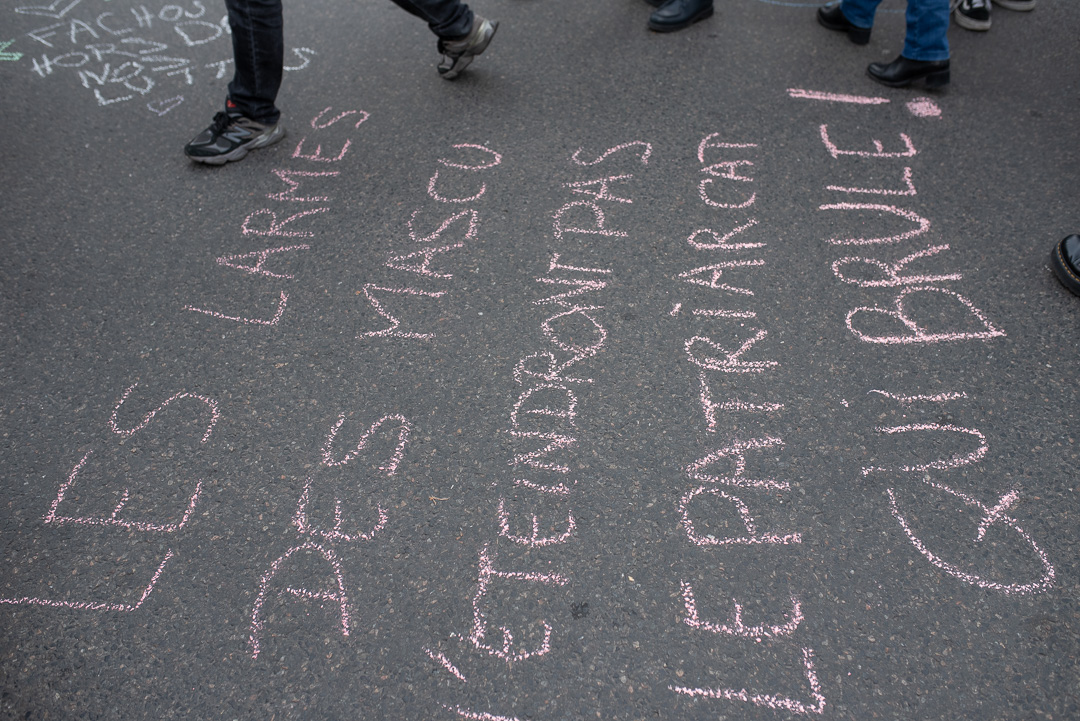 FACHOS
HORS DE
NOS
LES LARMES
DES MASCU
N'ETEINDRONT PAS
LE PATRIARCAT
QUI BRULE !